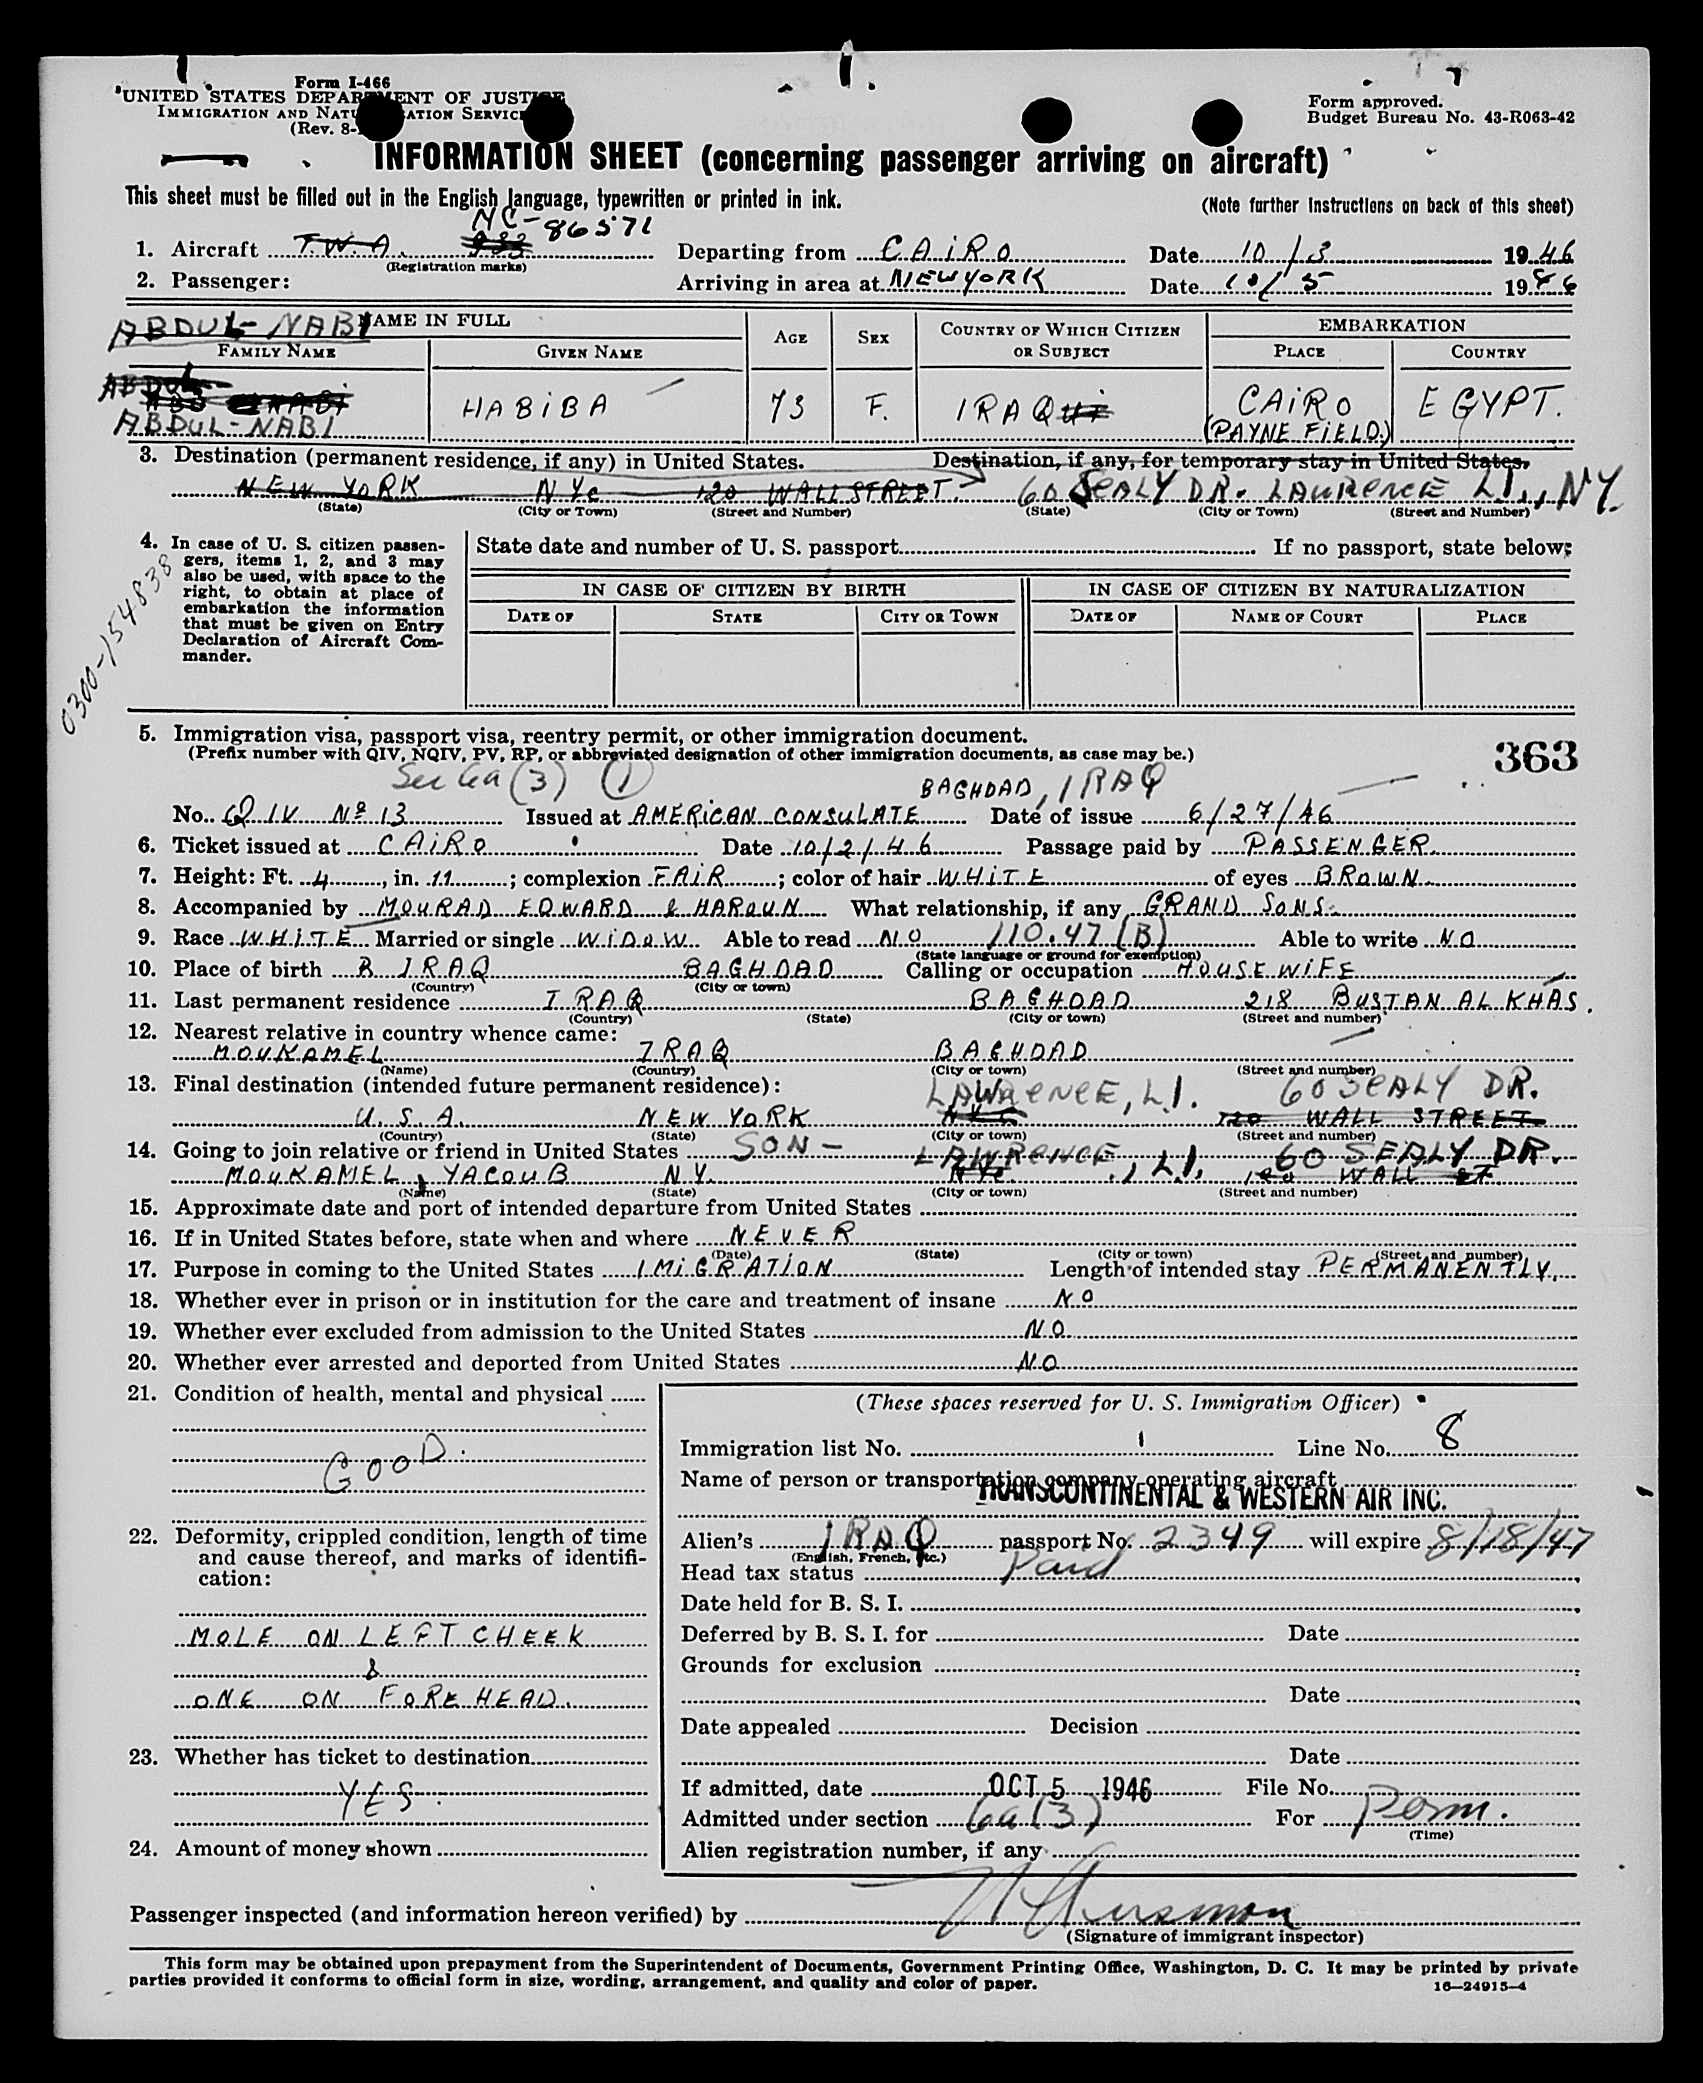 Form I-466
UNITED STATES DEPARTMENT OF JUSTICE
IMMIGRATION AND NATURALIZATION SERVICE
(Rev. 8-
Form approved.
Budget Bureau No. 43-R063-42
INFORMATION SHEET (concerning passenger arriving on aircraft)
This sheet must be filled out in the English language, typewritten or printed in ink.
(Note further instructions on back of this sheet)
NC-86571
1. Aircraft T.W.A. 933 Departing from CAIRO Date 10/3 1946
(Registration marks)
2. Passenger: Arriving in area at NEWYORK Date 10/5 1946
ABDUL-NABI NAME IN FULL AGE SEX COUNTRY OF WHICH CITIZEN OR SUBJECT EMBARKATION
FAMILY NAME GIVEN NAME PLACE COUNTRY
ABDUL
ABDUL-NABI HABIBA 73 F. IRAQ CAIRO (PAYNE FIELD.) EGYPT.
3. Destination (permanent residence, if any) in United States. Destination, if any, for temporary stay in United States.
NEW YORK NYC 120 WALL STREET. 60 SEALY DR. LAWRENCE L.I., NY.
(State) (City or Town) (Street and Number) (State) (City or Town) (Street and Number)
4. In case of U. S. citizen passengers, items 1, 2, and 3 may also be used, with space to the right, to obtain at place of embarkation the information that must be given on Entry Declaration of Aircraft Commander.
State date and number of U. S. passport If no passport, state below:
IN CASE OF CITIZEN BY BIRTH IN CASE OF CITIZEN BY NATURALIZATION
DATE OF STATE CITY OR TOWN DATE OF NAME OF COURT PLACE
0300-154838
5. Immigration visa, passport visa, reentry permit, or other immigration document.
(Prefix number with QIV, NQIV, PV, RP, or abbreviated designation of other immigration documents, as case may be.)
363
Sec 6a (3) (1) BAGHDAD, IRAQ
No. QIV Nº 13 Issued at AMERICAN CONSULATE Date of issue 6/27/46
6. Ticket issued at CAIRO Date 10/2/46 Passage paid by PASSENGER.
7. Height: Ft. 4, in. 11; complexion FAIR; color of hair WHITE of eyes BROWN.
8. Accompanied by MOURAD EDWARD & HAROUN What relationship, if any GRAND SONS.
9. Race WHITE Married or single WIDOW Able to read NO 110.47 (B) Able to write NO
(State language or ground for exemption)
10. Place of birth IRAQ BAGHDAD Calling or occupation HOUSEWIFE
(Country) (City or town)
11. Last permanent residence IRAQ BAGHDAD 218 BUSTAN AL KHAS.
(Country) (State) (City or town) (Street and number)
12. Nearest relative in country whence came:
MOUKAMEL IRAQ BAGHDAD
(Name) (Country) (City or town) (Street and number)
13. Final destination (intended future permanent residence): LAWRENCE, L.I. 60 SEALY DR.
U.S.A. NEW YORK NYC 120 WALL STREET
(Country) (State) (City or town) (Street and number)
14. Going to join relative or friend in United States SON - LAWRENCE, L.I. 60 SEALY DR.
MOUKAMEL, YACOUB N.Y. NYC 120 WALL ST
(Name) (State) (City or town) (Street and number)
15. Approximate date and port of intended departure from United States
16. If in United States before, state when and where NEVER
(Date) (State) (City or town) (Street and number)
17. Purpose in coming to the United States IMIGRATION Length of intended stay PERMANENTLY.
18. Whether ever in prison or in institution for the care and treatment of insane NO
19. Whether ever excluded from admission to the United States NO
20. Whether ever arrested and deported from United States NO
21. Condition of health, mental and physical
GOOD.
22. Deformity, crippled condition, length of time and cause thereof, and marks of identification:
MOLE ON LEFT CHEEK
&
ONE ON FOREHEAD.
23. Whether has ticket to destination
YES.
24. Amount of money shown
(These spaces reserved for U. S. Immigration Officer)
Immigration list No. 1 Line No. 8
Name of person or transportation company operating aircraft
TRANSCONTINENTAL & WESTERN AIR INC.
Alien's IRAQ passport No. 2349 will expire 8/18/47
(English, French, etc.)
Head tax status Paid
Date held for B. S. I.
Deferred by B. S. I. for Date
Grounds for exclusion
Date
Date appealed Decision
Date
If admitted, date OCT 5 1946 File No.
Admitted under section 6a(3) For Perm.
(Time)
Alien registration number, if any
Passenger inspected (and information hereon verified) by
(Signature of immigrant inspector)
This form may be obtained upon prepayment from the Superintendent of Documents, Government Printing Office, Washington, D. C. It may be printed by private
parties provided it conforms to official form in size, wording, arrangement, and quality and color of paper.
16—24915-4